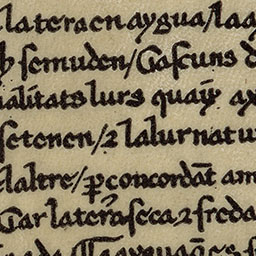 la tera en aygua/la ay
semuden/Gascuns d
alitats lurs quays ax
setenen/⁊ la lur natu
laltre/ꝑ concordāt am
Car la terra seca ⁊ freda